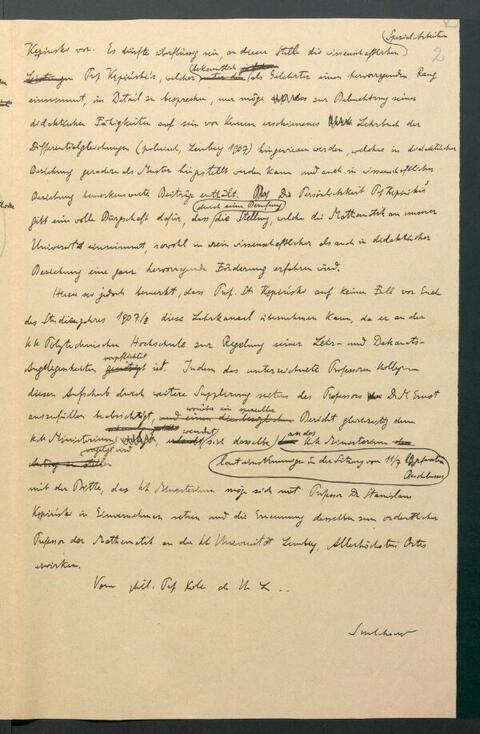 Spezial-Arbeiten
2
Kępiński vor. Es dürfte überflüssig sein, an dieser Stelle die wissenschaftlichen
Leistungen Prof Kępiński's, welcher bekanntlich als Gelehrter einen hervorragenden Rang
einnimmt, im Detail zu besprechen, nur möge zur Beleuchtung seiner
didaktischen Fähigkeiten auf sein vor Kurzem erschienenes Lehrbuch der
Differentialgleichungen (polnisch, Lemberg 1907) hingewiesen werden, welches in didaktischer
Beziehung geradezu als Muster hingestellt werden kann und auch in wissenschaftlicher
Beziehung bemerkenswerte Beiträge enthält. Die Persönlichkeit Prof Kępiński's
durch seine Berufung
gibt eine volle Bürgschaft dafür, dass die Stellung, welche die Mathematik an unserer
Universität einnimmt, sowohl in rein wissenschaftlicher als auch in didaktischer
Beziehung eine ganz hervorragende Förderung erfahren wird.
Hiezu sei jedoch bemerkt, dass Prof. St Kępiński auf keinen Fall vor Ende
des Studienjahres 1907/8 diese Lehrkanzel übernehmen kann, da er an der
kk Polytechnischen Hochschule zur Regelung seiner Lehr- und Dekanats-
verpflichtet
Angelegenheiten genötigt ist. Indem das unterzeichnete Professoren Kollegium
diesen Aufschub durch weitere Supplierung seitens des Professors Dr. M. Ernst
auszufüllen beabsichtigt, Bericht gleichzeitig dem
k.k. Ministerium vorgelegt wird wendet sich dasselbe an das kk Ministerium
laut einstimmiger in der Sitzung vom 11/7 gefassten
Beschlusses
mit der Bitte, das kk Ministerium möge sich mit Professor Dr Stanislaus
Kępiński in Einvernehmen setzen und die Ernennung desselben zum ordentlichen
Professor der Mathematik an der kk Universität Lemberg, Allerhöchsten Ortes
erwirken.
Vom phil. Prof Koll. der Un L ..